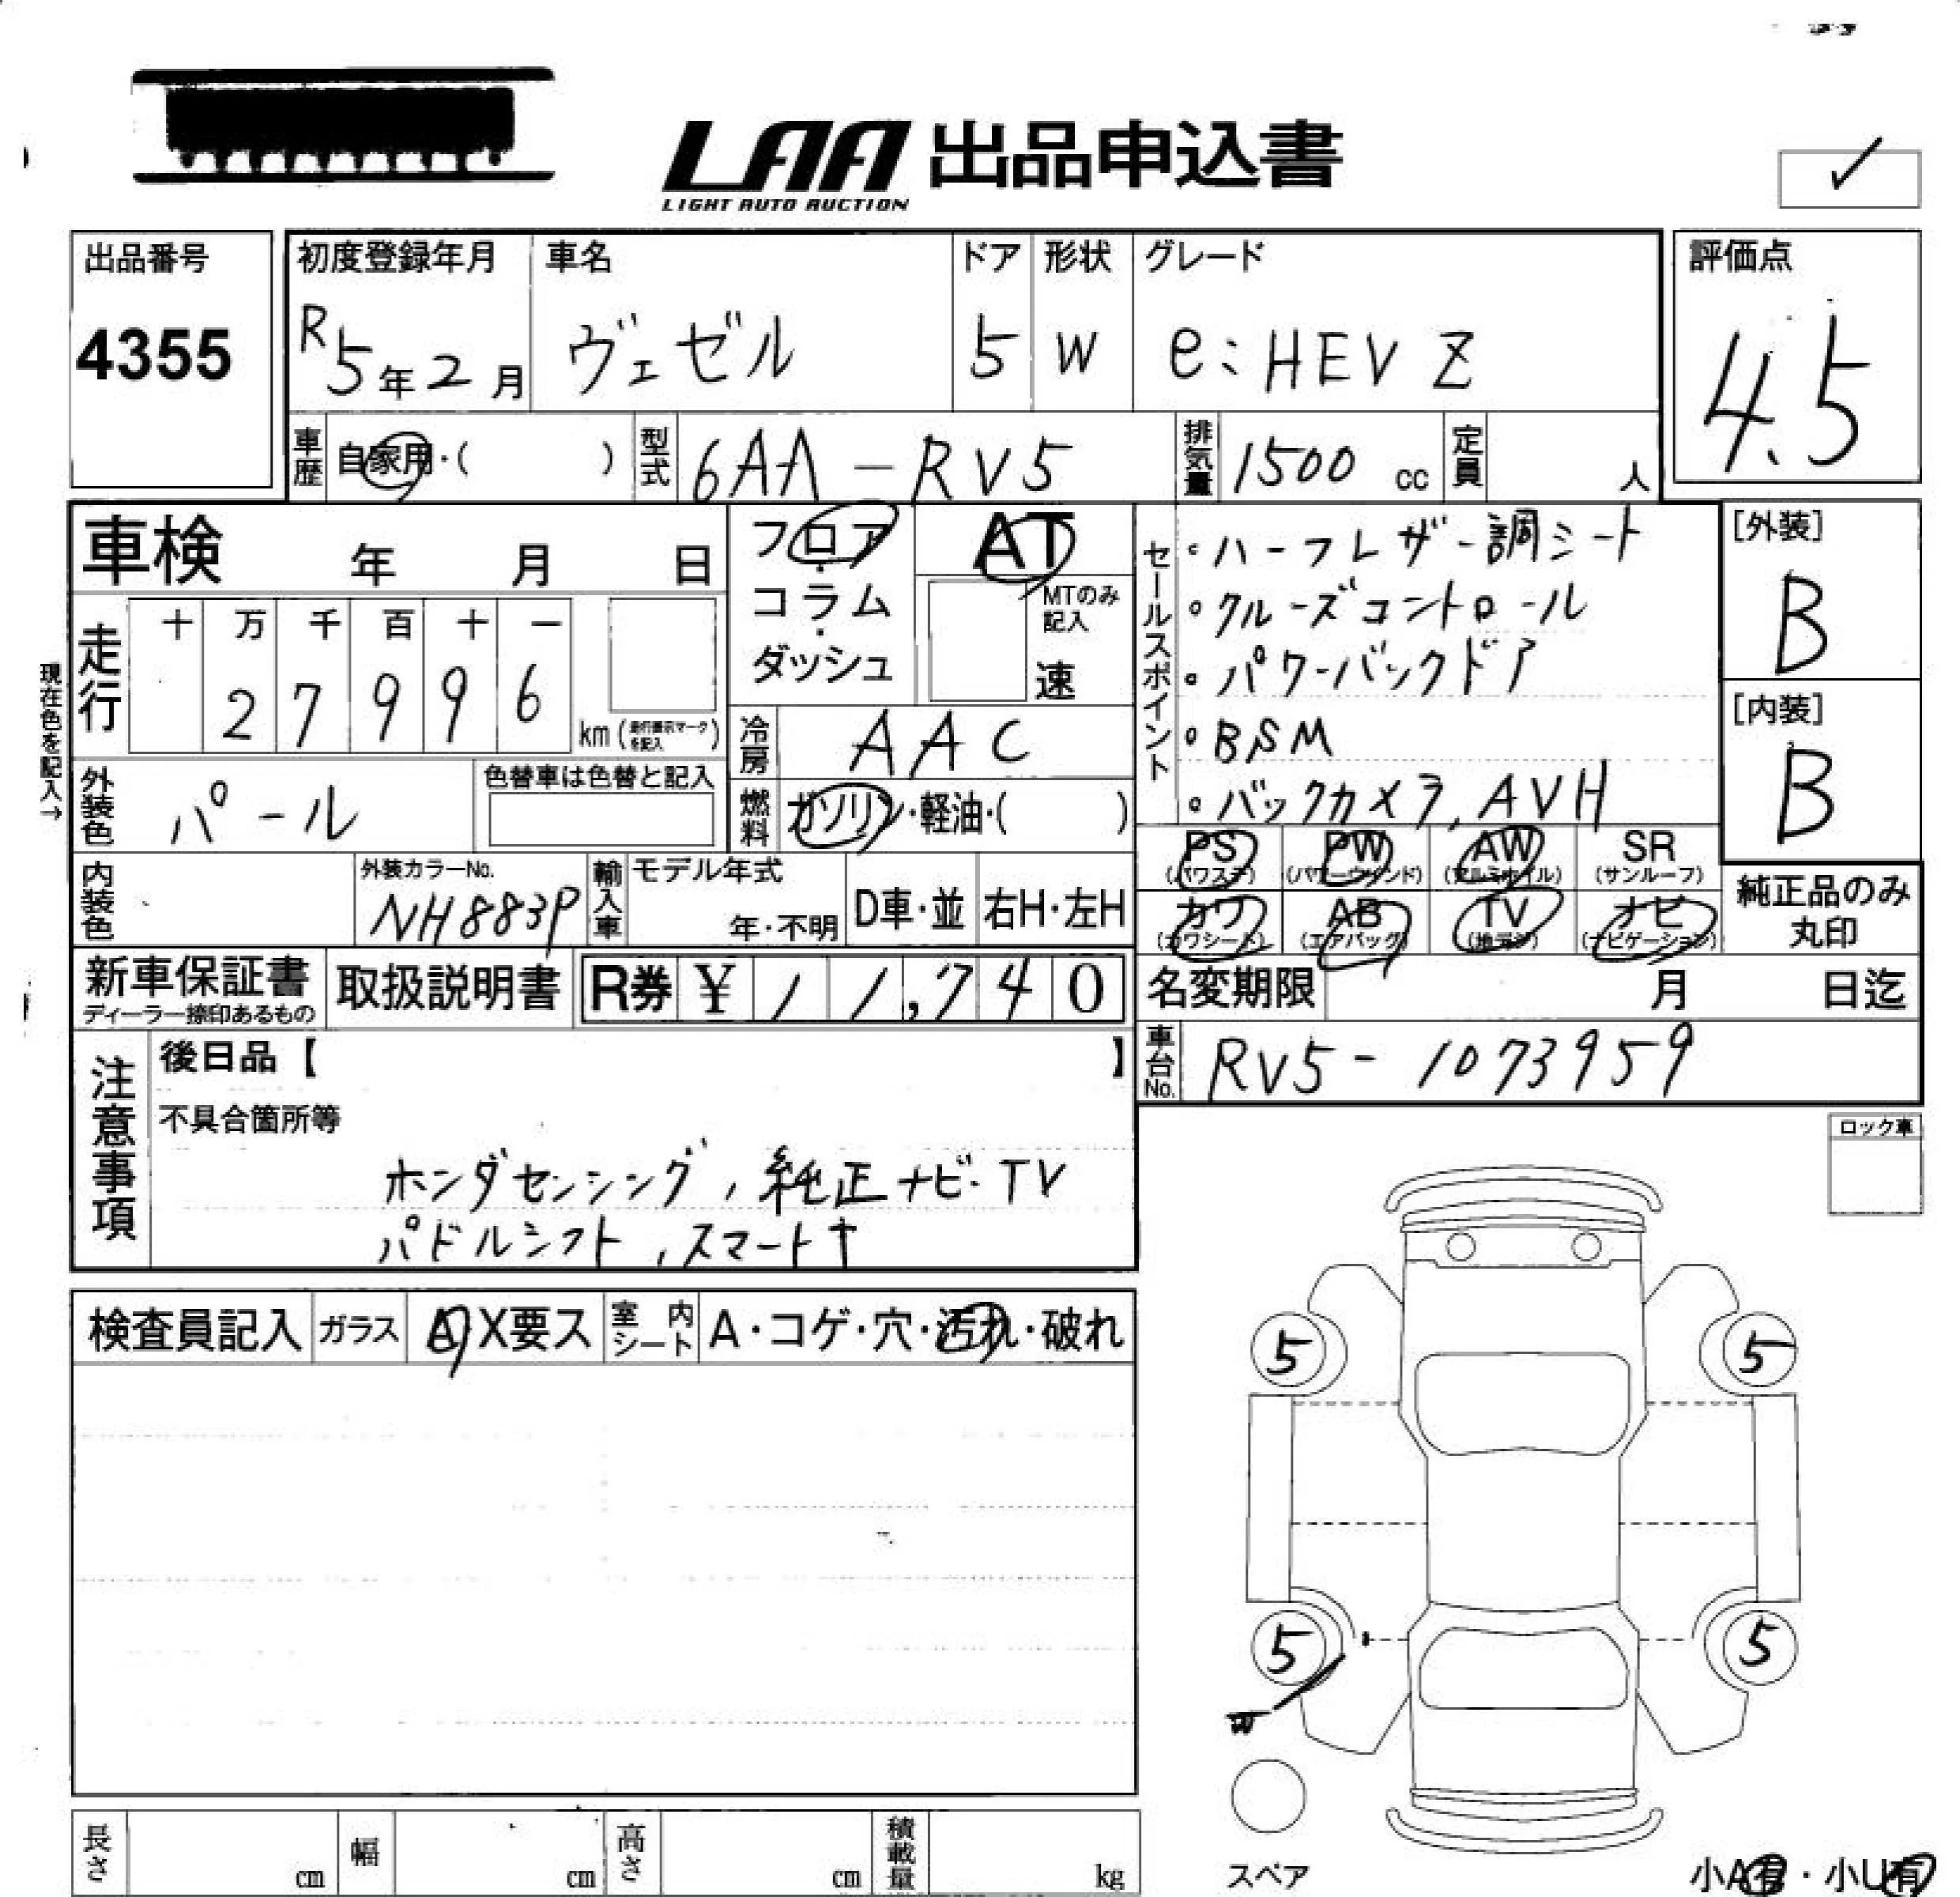 LAA 出品申込書
LIGHT AUTO AUCTION
出品番号
4355
初度登録年月
R5年2月
車名
ヴェゼル
ドア
5
形状
W
グレード
e:HEV Z
評価点
4.5
車歴 自家用・( )
型式 6AA-RV5
排気量 1500 cc
定員 人
車検 年 月 日
走行 十 万 千 百 十 一
2 7 9 9 6
km(走行表示マークを記入)
現在色を記入→
フロア・コラム・ダッシュ
AT
MTのみ記入
速
冷房 AAC
燃料 ガソリン・軽油・( )
外装色 パール
色替車は色替と記入
内装色
外装カラーNo.
NH883P
輸入車
モデル年式
年・不明
D車・並
右H・左H
セールスポイント
・ハーフレザー調シート
・クルーズコントロール
・パワーバックドア
・BSM
・バックカメラ,AVH
[外装]
B
[内装]
B
PS (パワステ)
PW (パワーウインド)
AW (アルミホイル)
SR (サンルーフ)
カワ (カワシート)
AB (エアバッグ)
TV (地デジ)
ナビ (ナビゲーション)
純正品のみ
丸印
新車保証書
ディーラー捺印あるもの
取扱説明書
R券 ¥ 11,740
名変期限 月 日迄
車台No. RV5-1073959
注意事項
後日品【 】
不具合箇所等
ホンダセンシング,純正ナビ・TV
パドルシフト,スマートキ
ロック車
検査員記入
ガラス A・X要ス
室内シート A・コゲ・穴・汚れ・破れ
5
5
5
5
W
スペア
長さ cm
幅 cm
高さ cm
積載量 kg
小A有・小U有